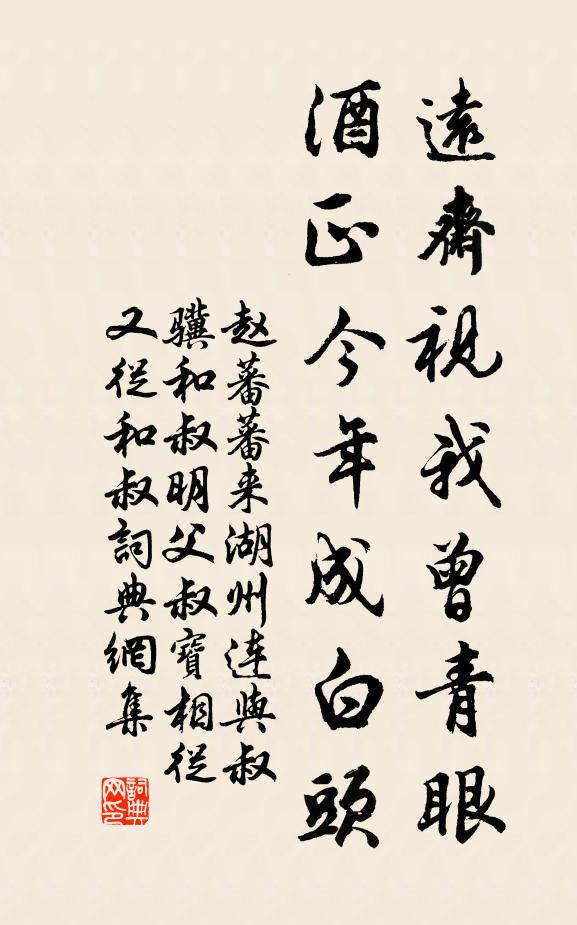 遠齋視我曾青眼
酒正今年成白頭
赵蕃蕃来湖州连與叔
驥和叔明父叔寶相従
又從和叔詞典網集
詞典網印